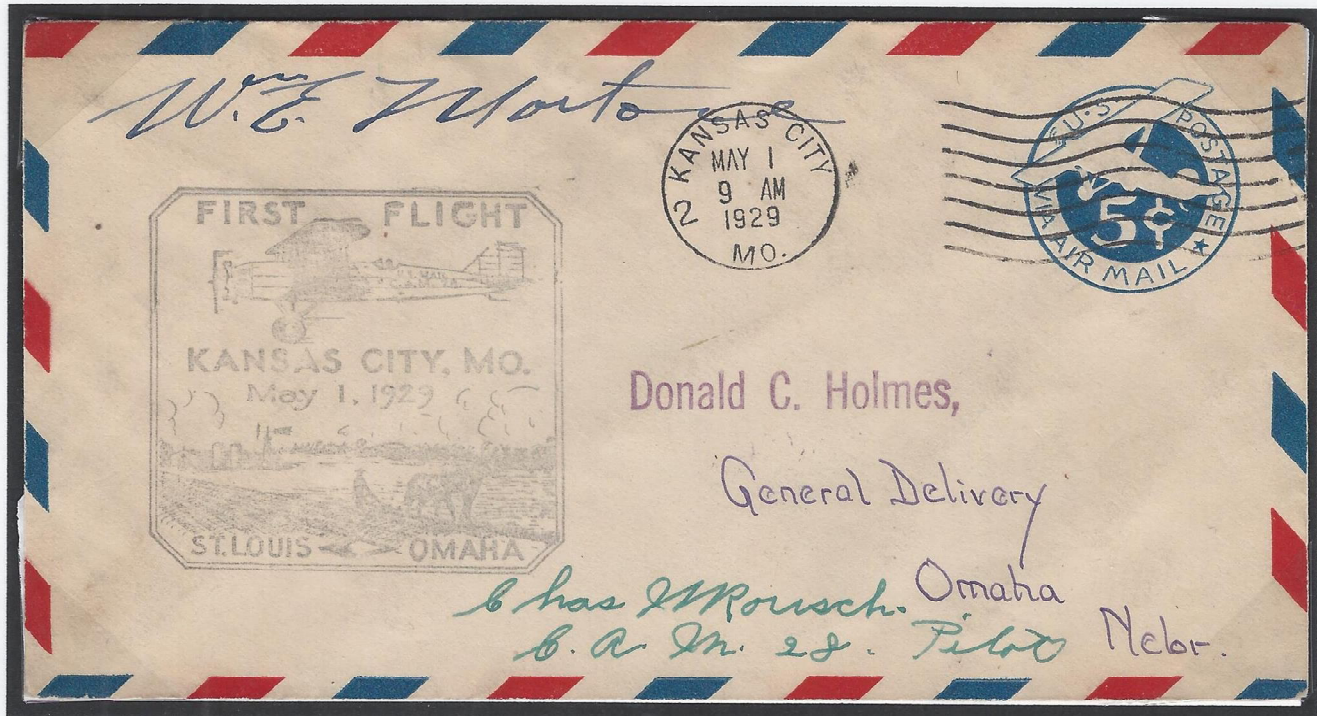 Wm. E.
KANSAS CITY
MAY 1
9 AM
1929
MO.
2
U.S. POSTAGE
5¢
VIA AIR MAIL
FIRST FLIGHT
U.S. MAIL
KANSAS CITY, MO.
May 1, 1929
ST. LOUIS OMAHA
Donald C. Holmes,
General Delivery
Omaha
Nebr.
Chas
C. A. M. 28. Pilot